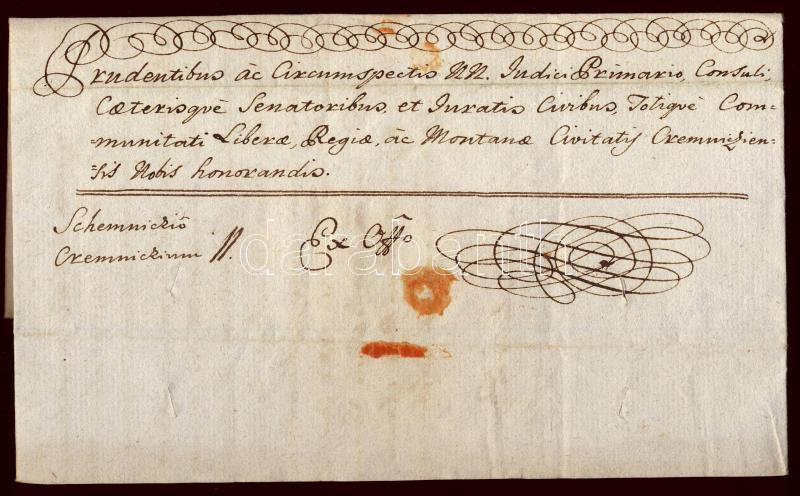 Prudentibus ác Circumspectis NN. Iudici Primario, Consuli,
Cæterisqvè Senatoribus, et Iuratis Civibus, Totiqvè Com=
=munitati Liberæ, Regiæ, ác Montanæ Civitatis Cremniczien=
=sis Nobis honorandis.
Schemniczió
Cremniczium
Ex Offo
darabanth